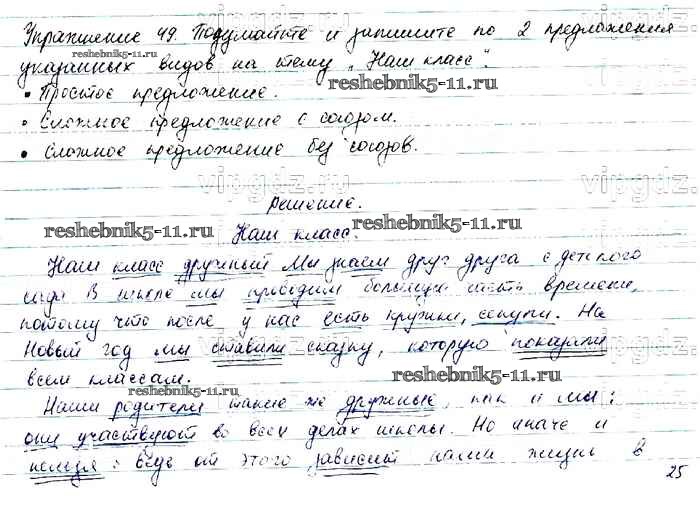 Упражнение 49. Подумайте и запишите по 2 предложения
указанных видов на тему „Наш класс“.
• Простое предложение.
• Сложное предложение с союзом.
• Сложное предложение без союзов.
решение.
Наш класс.
Наш класс дружный. Мы знаем друг друга с детского
сада. В школе мы проводим большую часть времени,
потому что после у нас есть кружки, секции. На
Новый год мы ставили сказку, которую показали
всем классам.
Наши родители такие же дружные, как и мы:
они участвуют во всех делах школы. Но иначе и
нельзя: ведь от этого зависит наши жизни в
25
reshebnik5-11.ru
reshebnik5-11.ru
reshebnik5-11.ru
reshebnik5-11.ru
reshebnik5-11.ru
reshebnik5-11.ru
vipgdz.ru
vipgdz.ru
vipgdz.ru